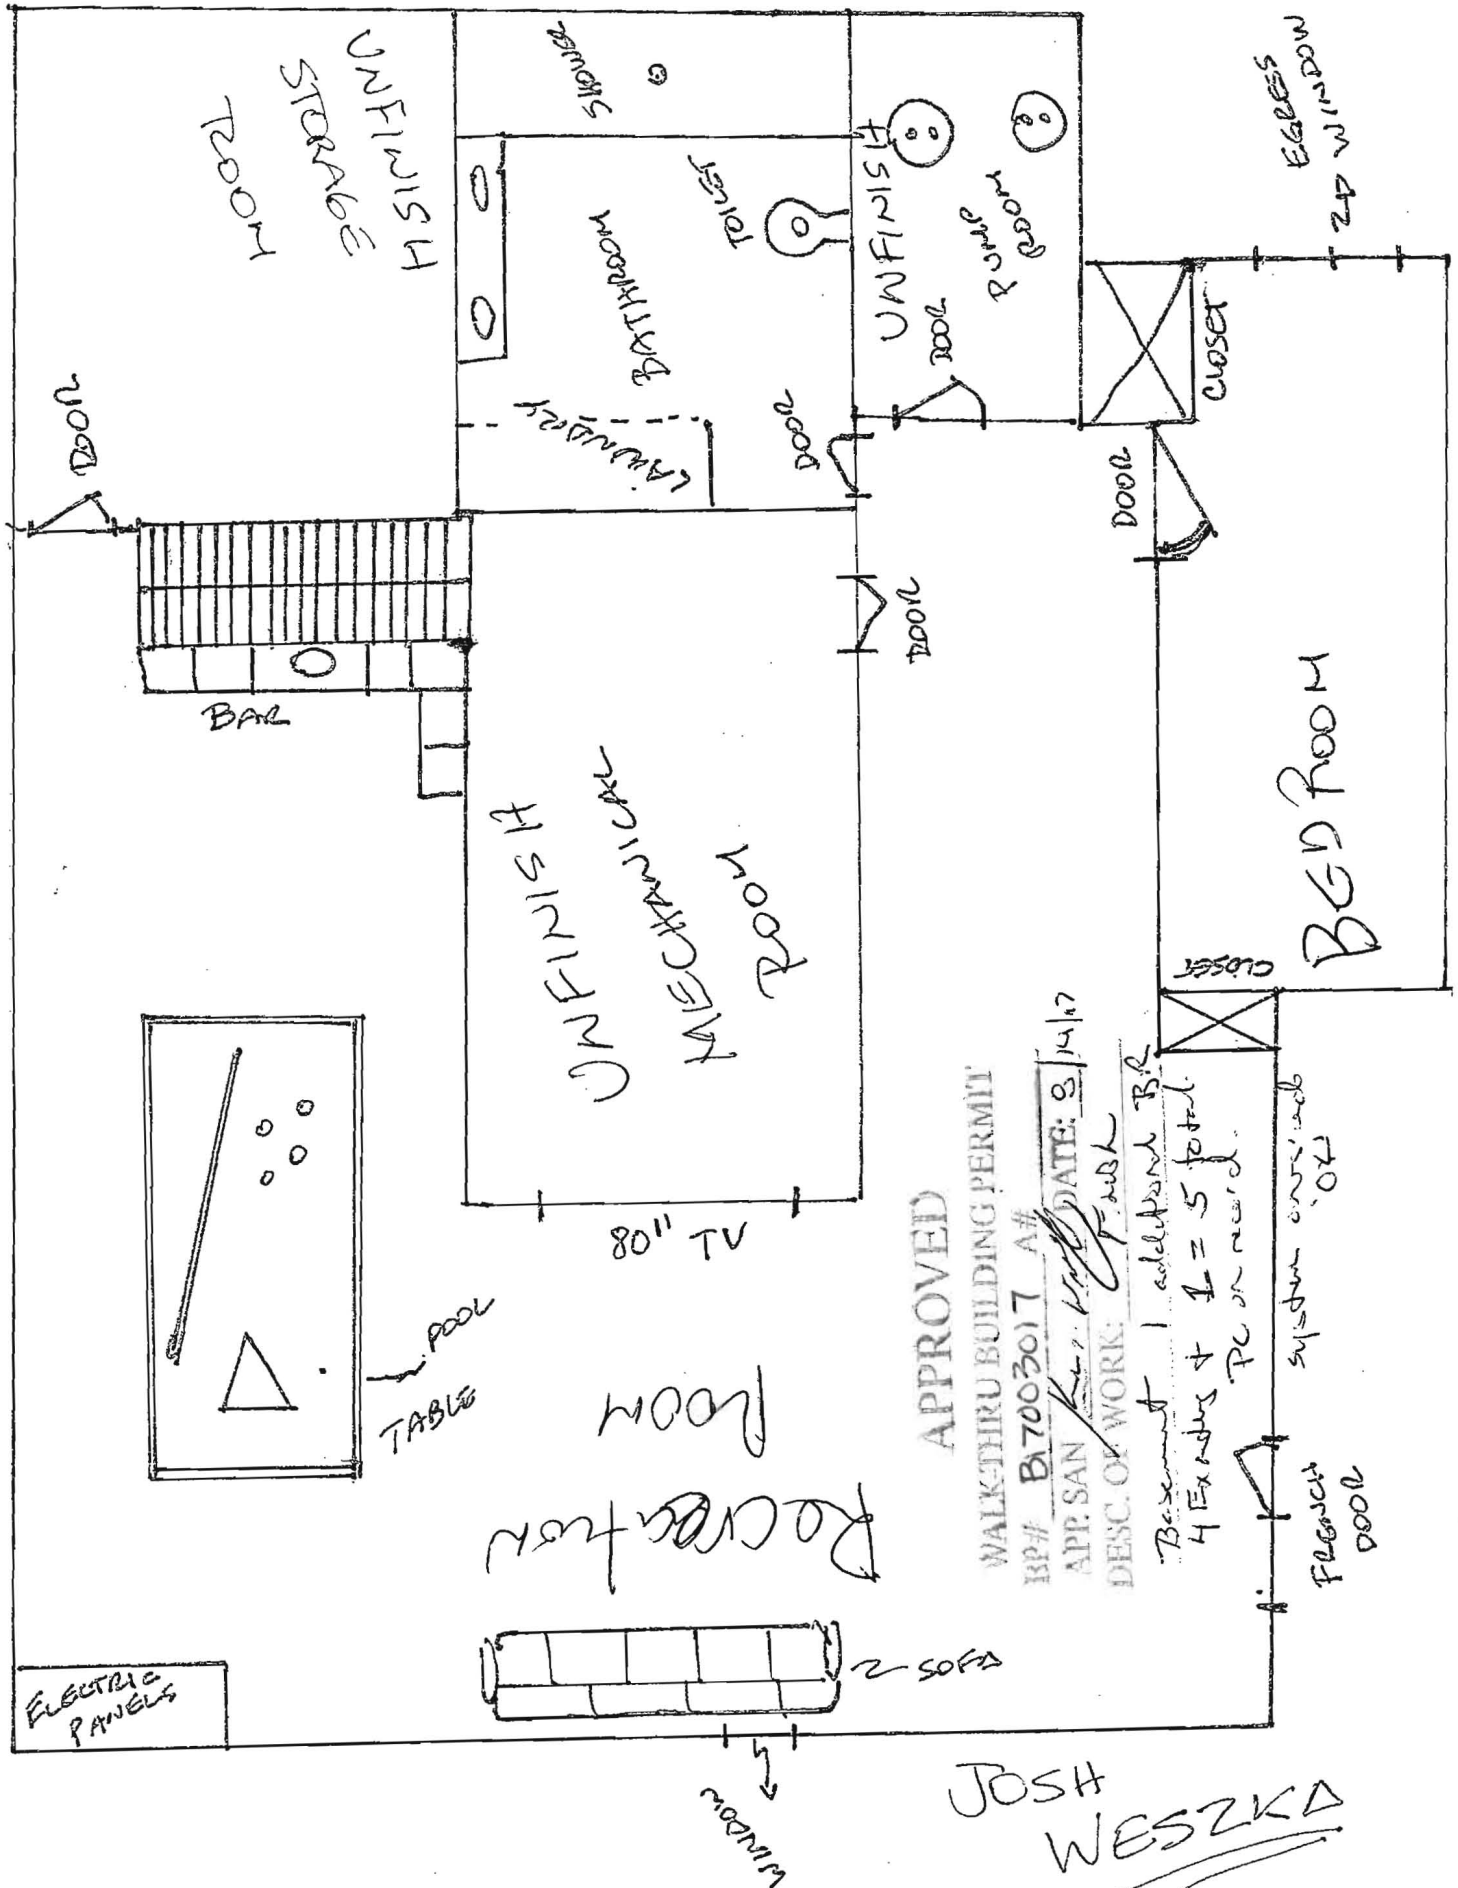 UNFINISH
STORAGE
ROOM
SHOWER
UNFINISH
PUMP
ROOM
EGRESS
WINDOW
TOILET
BATHROOM
LAUNDRY
DOOR
DOOR
DOOR
CLOSET
DOOR
DOOR
BAR
UNFINISH
MECHANICAL
ROOM
BED ROOM
CLOSET
80" TV
POOL
TABLE
RECREATION
ROOM
APPROVED
WALK-THRU BUILDING PERMIT
BP# B17003017 A#
APP. SAN DATE: 8/14/17
DESC. OF WORK: Finish
Basement 1 additional BR
4 Existing + 1 = 5 total.
PC on record.
system oversized
OK
FRENCH
DOOR
SOFA
ELECTRIC
PANELS
WINDOW
JOSH
WESZKA